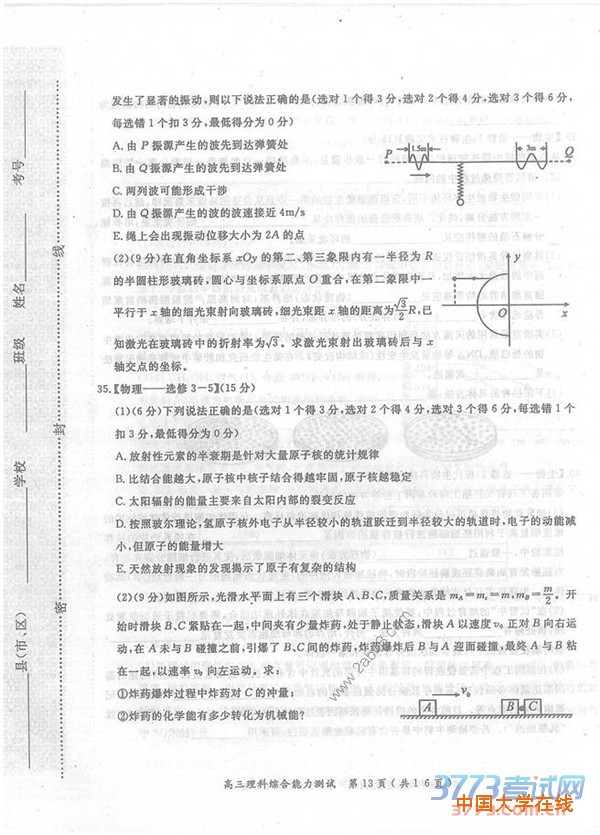 发生了显著的振动,则以下说法正确的是(选对1个得3分,选对2个得4分,选对3个得6分,
每选错1个扣3分,最低得分为0分)
A.由P振源产生的波先到达弹簧处
B.由Q振源产生的波先到达弹簧处
C.两列波可能形成干涉
D.由Q振源产生的波的波速接近4m/s
E.绳上会出现振动位移大小为2A的点
P 1.5m 3m Q
(2)(9分)在直角坐标系xOy的第二、第三象限内有一半径为R
的半圆柱形玻璃砖,圆心与坐标系原点O重合,在第二象限中一
平行于x轴的细光束射向玻璃砖,细光束距x轴的距离为√3/2R,已
知激光在玻璃砖中的折射率为√3。求激光束射出玻璃砖后与x
轴交点的坐标。
y
O x
35.【物理——选修3-5】(15分)
(1)(6分)下列说法正确的是(选对1个得3分,选对2个得4分,选对3个得6分,每选错1个
扣3分,最低得分为0分)
A.放射性元素的半衰期是针对大量原子核的统计规律
B.比结合能越大,原子核中核子结合得越牢固,原子核越稳定
C.太阳辐射的能量主要来自太阳内部的裂变反应
D.按照玻尔理论,氢原子核外电子从半径较小的轨道跃迁到半径较大的轨道时,电子的动能减
小,但原子的能量增大
E.天然放射现象的发现揭示了原子有复杂的结构
(2)(9分)如图所示,光滑水平面上有三个滑块A、B、C,质量关系是mA=mc=m,mB=m/2。开
始时滑块B、C紧贴在一起,中间夹有少量炸药,处于静止状态,滑块A以速度v0正对B向右运
动,在A未与B碰撞之前,引爆了B、C间的炸药,炸药爆炸后B与A迎面碰撞,最终A与B粘
在一起,以速率v0向左运动。求:
①炸药爆炸过程中炸药对C的冲量;
②炸药的化学能有多少转化为机械能?
v0
A B C
高三理科综合能力测试 第13页(共16页)
县(市、区) 学校 班级 姓名 考号
密 封 线
3773考试网
中国大学在线